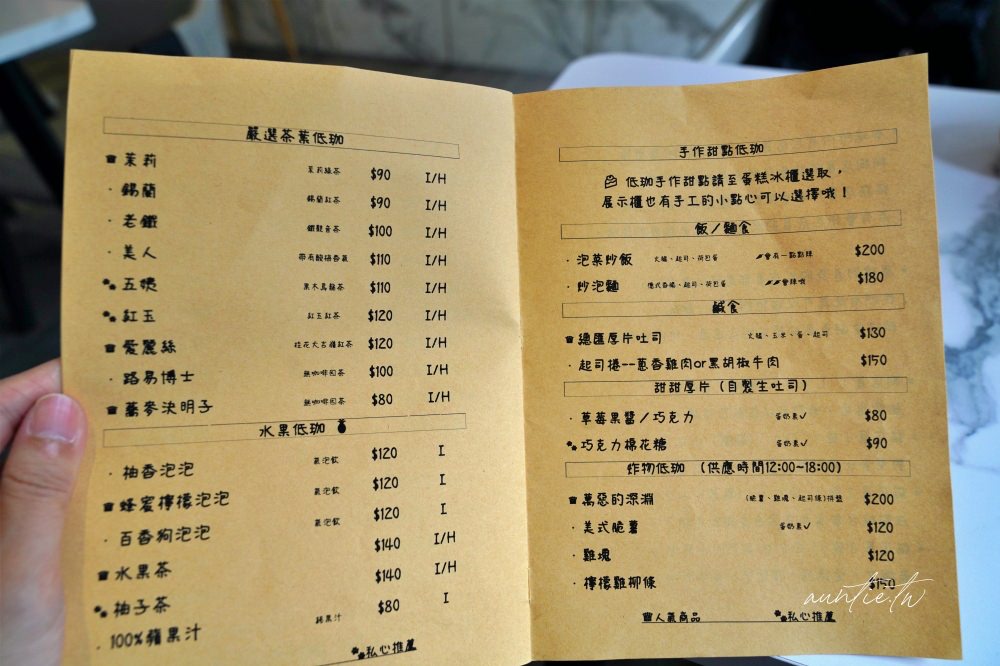 嚴選茶葉低珈
茉莉 茉莉綠茶 $90 I/H
· 錫蘭 錫蘭紅茶 $90 I/H
· 老鐵 鐵觀音茶 $100 I/H
· 美人 帶有酸梅香氣 $110 I/H
五嬈 黑木烏龍茶 $110 I/H
紅玉 紅玉紅茶 $120 I/H
愛麗絲 桂花大吉嶺紅茶 $120 I/H
· 路易博士 無咖啡因茶 $100 I/H
蕎麥決明子 無咖啡因茶 $80 I/H
水果低珈
· 柚香泡泡 氣泡飲 $120 I
蜂蜜檸檬泡泡 氣泡飲 $120 I
· 百香狗泡泡 氣泡飲 $120 I
水果茶 $140 I/H
柚子茶 $140 I/H
· 100%蘋果汁 蘋果汁 $80 I
私心推薦
手作甜點低珈
低珈手作甜點請至蛋糕冰櫃選取，
展示櫃也有手工的小點心可以選擇哦！
飯／麵食
· 泡菜炒飯 火腿、起司、荷包蛋 會有一點點辣 $200
· 炒泡麵 德式香腸、起司、荷包蛋 會辣哦 $180
鹹食
總匯厚片吐司 火腿、玉米、蛋、起司 $130
· 起司捲--蔥香雞肉or黑胡椒牛肉 $150
甜甜厚片（自製生吐司）
· 草莓果醬／巧克力 蛋奶素✓ $80
巧克力棉花糖 蛋奶素✓ $90
炸物低珈 （供應時間12:00~18:00）
萬惡的深淵 (脆薯、雞塊、起司條)拼盤 $200
· 美式脆薯 蛋奶素✓ $120
· 雞塊 $120
· 檸檬雞柳條 $150
人氣商品 私心推薦
auntie.tw